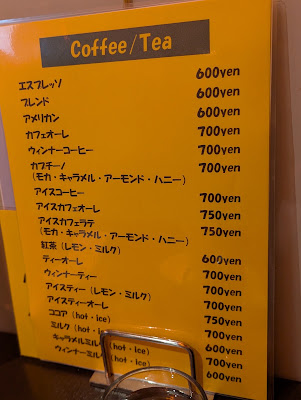 Coffee/Tea
エスプレッソ 600yen
ブレンド 600yen
アメリカン 600yen
カフェオーレ 700yen
ウィンナーコーヒー 700yen
カプチーノ 700yen
(モカ・キャラメル・アーモンド・ハニー)
アイスコーヒー 700yen
アイスカフェオーレ 750yen
アイスカフェラテ 750yen
(モカ・キャラメル・アーモンド・ハニー)
紅茶 (レモン・ミルク) 600yen
ティーオーレ 700yen
ウィンナーティー 700yen
アイスティー (レモン・ミルク) 700yen
アイスティーオーレ 750yen
ココア (hot・ice) 700yen
ミルク (hot・ice) 600yen
キャラメルミルク (hot・ice) 700yen
ウィンナーミルク (hot・ice) 600yen